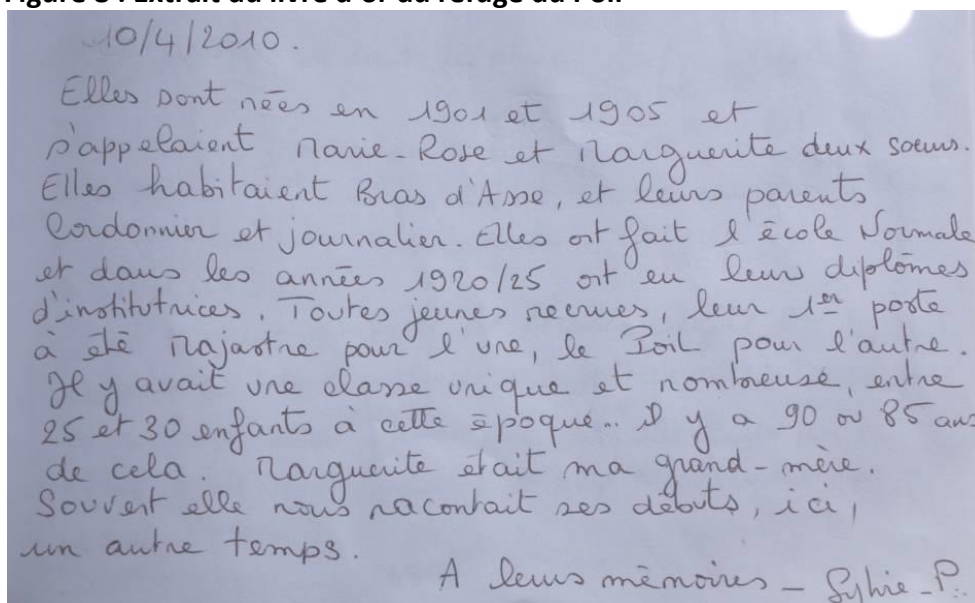 10/4/2010.
Elles sont nées en 1901 et 1905 et
s'appelaient Marie-Rose et Marguerite deux soeurs.
Elles habitaient Bras d'Asse, et leurs parents
Cordonnier et journalier. Elles ont fait l'école Normale
et dans les années 1920/25 ont eu leur diplômes
d'institutrices. Toutes jeunes recrues, leur 1er poste
à été Majastre pour l'une, le Poil pour l'autre.
Il y avait une classe unique et nombreuse, entre
25 et 30 enfants à cette époque.. Il y a 90 ou 85 ans
de cela. Marguerite était ma grand-mère.
Souvent elle nous racontait ses débuts, ici,
un autre temps.
A leurs mémoires - Sylvie - P..